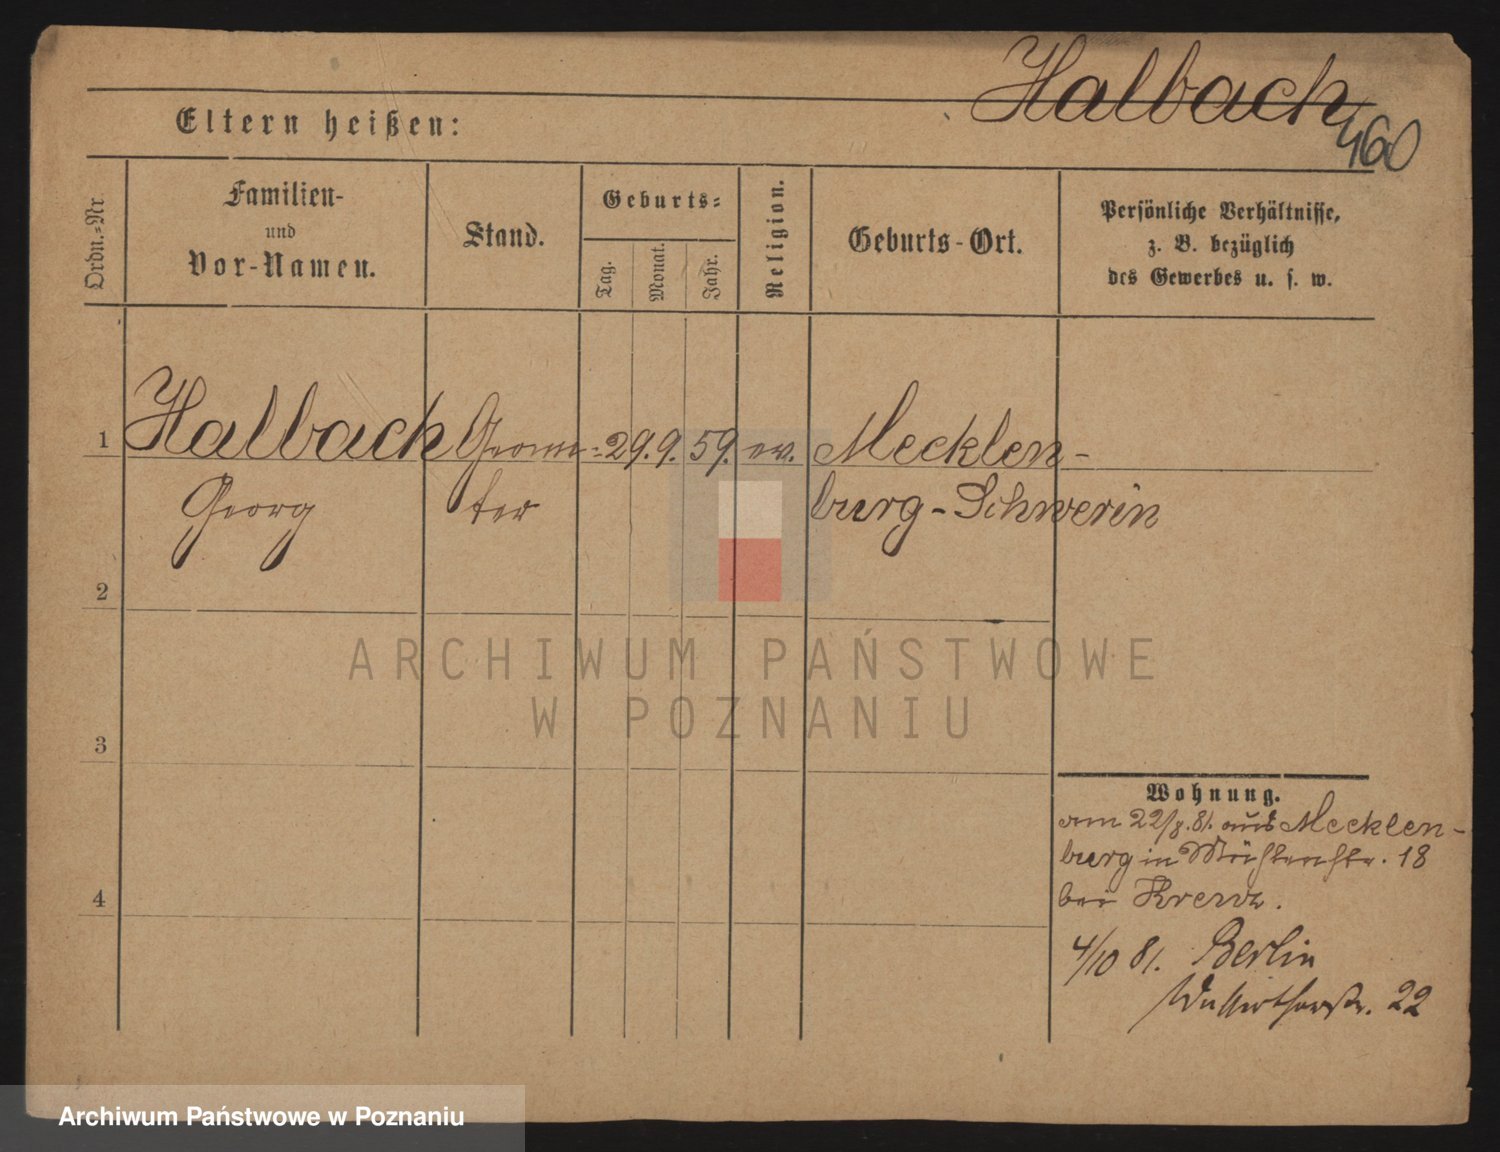 Halbach
460
Eltern heißen:
Ordn.=Nr.
Familien-
und
Vor-Namen.
Stand.
Geburts=
Tag.
Monat.
Jahr.
Religion.
Geburts-Ort.
Persönliche Verhältnisse,
z. B. bezüglich
des Gewerbes u. s. w.
1 Halbach Geome= 29. 9. 59. ev. Mecklen-
Georg ter burg-Schwerin
2
3
4
Wohnung.
am 22/8. 81. aus Mecklen-
burg in Mühlenstr. 18
bei Kreuz.
4/10 81. Berlin
22
ARCHIWUM PAŃSTWOWE
W POZNANIU
Archiwum Państwowe w Poznaniu